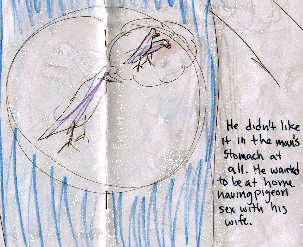 He didn't like
it in the man's
stomach at
all. He wanted
to be at home
having pigeon
sex with his
wife.